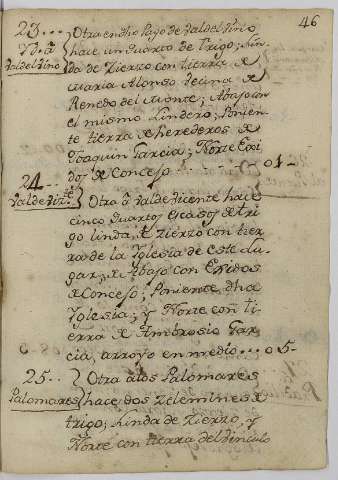 46
23... Otra en dho Pago de Valdelvino
Valdelvino
hace un Quarto de trigo; Lin-
da de Zierzo con tierra de
Maria Alonso vecina de
Renedo del Monte; Abajo con
el mismo Lindero; Ponien-
te tierra de herederos de
Joaquin Garcia; Norte Exi-
dos de Concejo... 01-
24... Otra â Valdevicente hace
cinco Quartos escasos de tri-
go linda, Zierzo con tier-
rra de la Iglesia de este Lu-
gar; de Abajo con Exidos
de Concejo; Poniente dha
Yglesia; y Norte con ti-
erra de Ambrosio Gar-
cia, arroyo en medio... 05-
25.. Otra alos Palomares
Palomares
hace dos zelemines de
trigo; Linda de Zierzo, y
Norte con tierra del vinculo